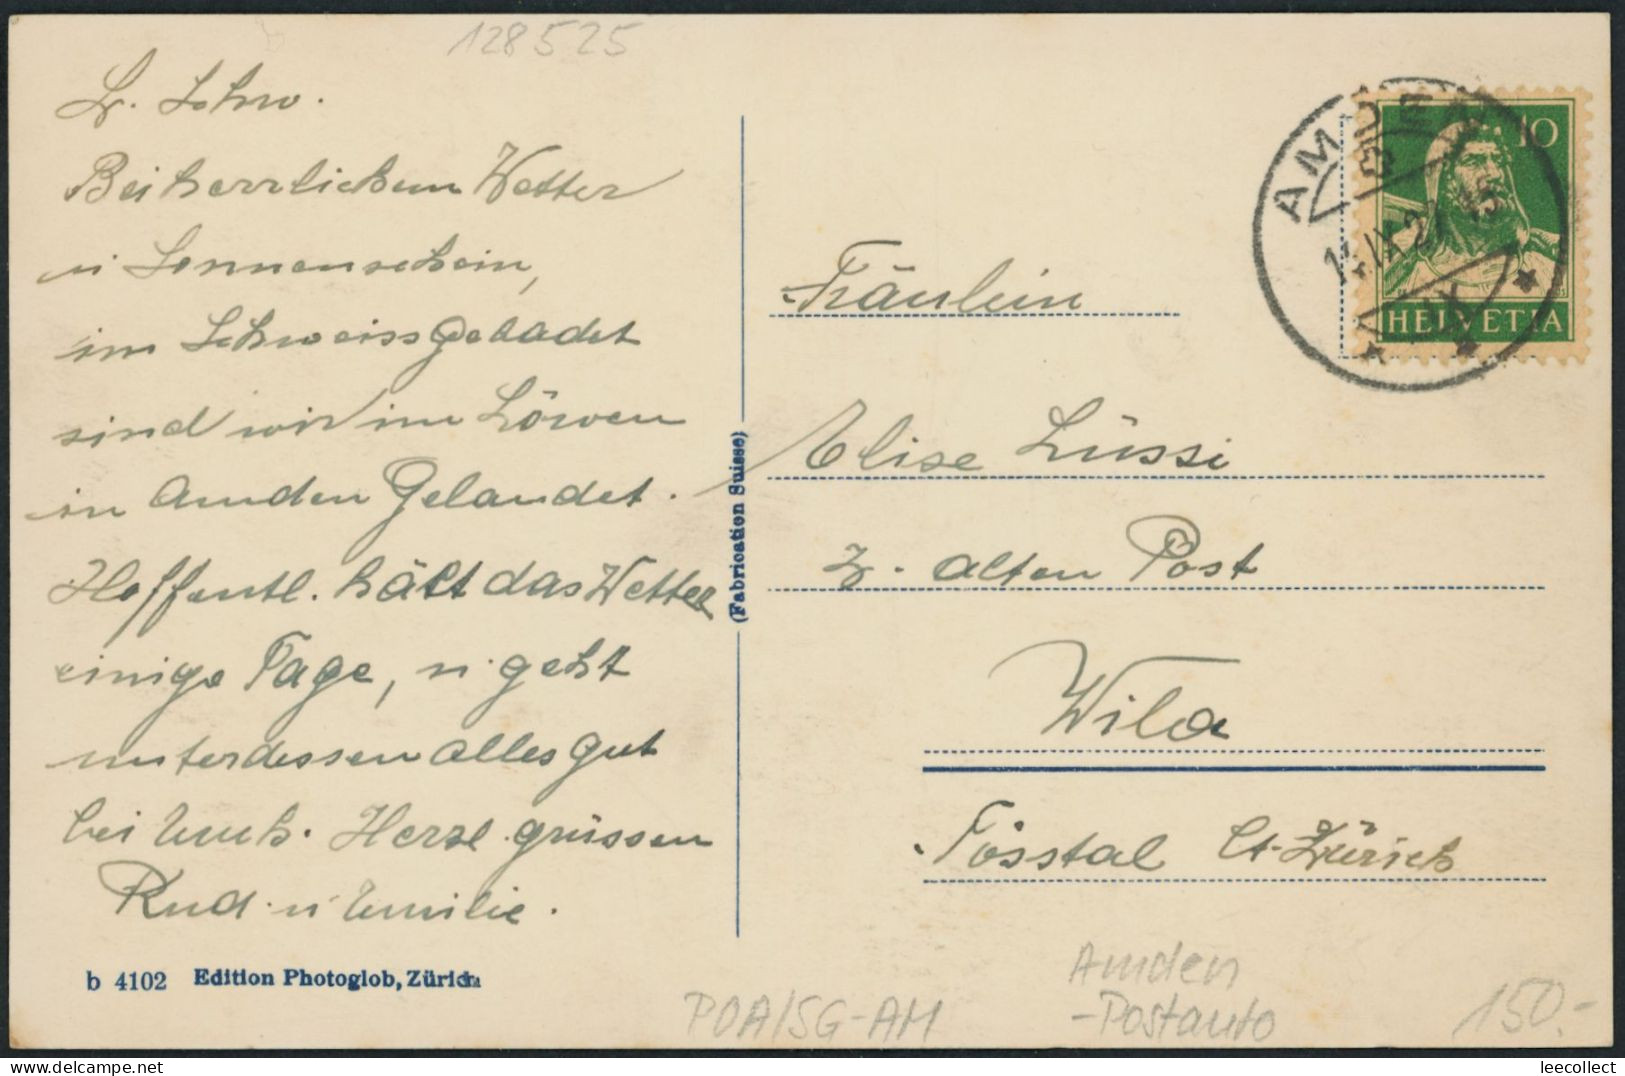 128525
L. Schw.
Bei herrlichem Wetter
u Sonnenschein,
im Schweiss gebadet
sind wir im Löwen
in Amden Gelandet.
Hoffentl. hält das Wetter
einige Tage, u geht
unterdessen alles gut
bei Euch. Herzl. grüssen
Rud. u Emilie.
b 4102 Edition Photoglob, Zürich
(Fabrication Suisse)
AMDEN
IX
10
HELVETIA
Fräulein
Elise Lüssi
z. alten Post
Wila
Tösstal Ct. Zürich
Amden
-Postauto
POA/SG-AM
150.-
leecollect